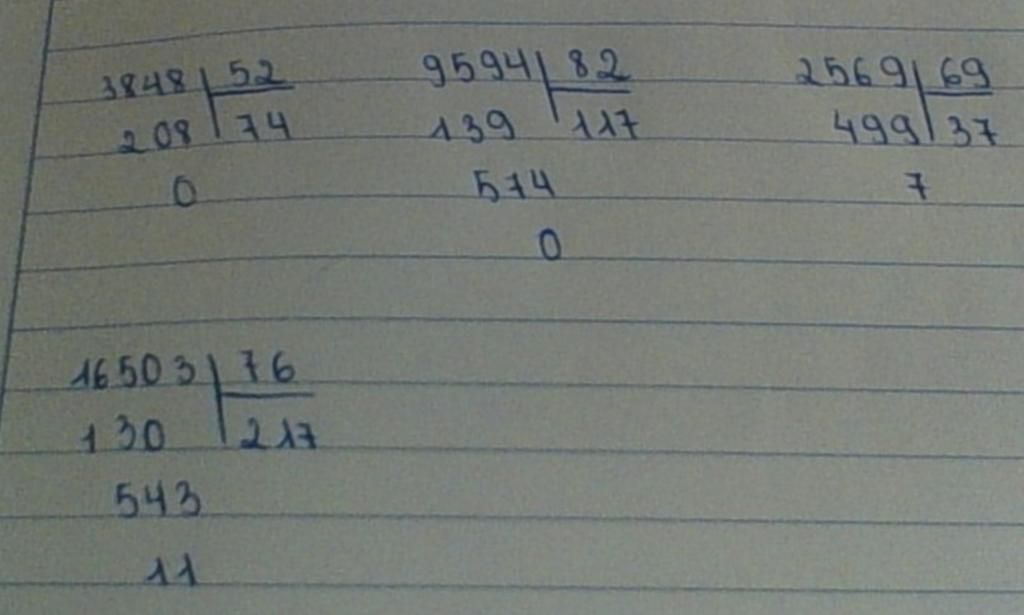 3848 52 9594 82 2569 69
208 74 139 117 499 37
0 574 7
0
16503 76
130 217
543
11